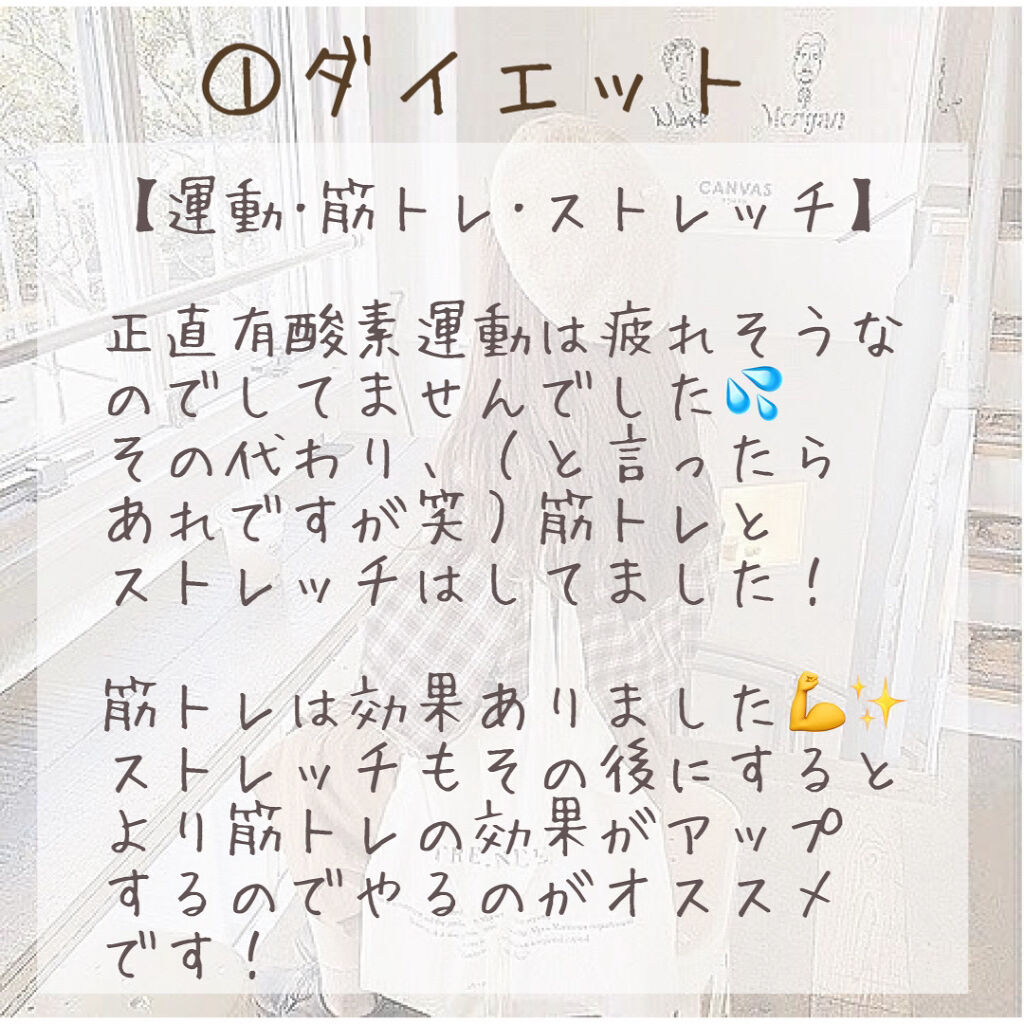 ①ダイエット
Morgan
CANVAS
【運動·筋トレ·ストレッチ】
正直有酸素運動は疲れそうな
のでしてませんでした💦
その代わり、（と言ったら
あれですが笑）筋トレと
ストレッチはしてました！
筋トレは効果ありました💪✨
ストレッチもその後にすると
より筋トレの効果がアップ
するのでやるのがオススメ
です！